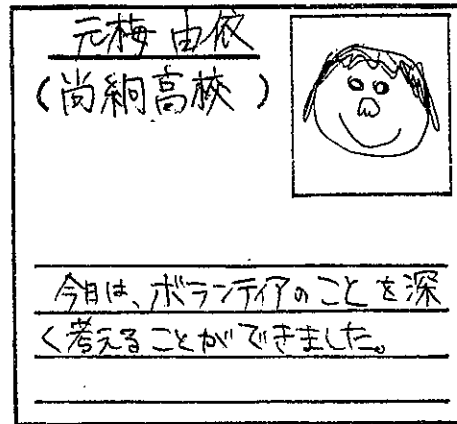 元梅 由依
(尚絅高校)
今日は、ボランティアのことを深
く考えることができました。